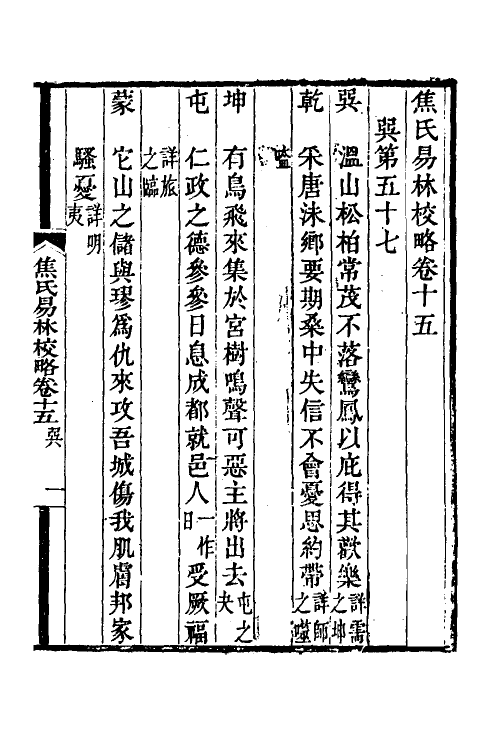 焦氏易林校略卷十五
巽第五十七
巽　溫山松柏常茂不落鸞鳳以庇得其歡樂詳需之坤
乾　采唐沬鄉要期桑中失信不會憂思約帶詳師之噬
嗑
坤　有鳥飛來集於宮樹鳴聲可惡主將出去屯之夬
屯　仁政之德參參日息成都就邑人一作日受厥福
詳旅之臨
蒙　它山之儲與璆爲仇來攻吾城傷我肌膚邦家
騷憂詳明夷
焦氏易林校略卷十五　巽　一